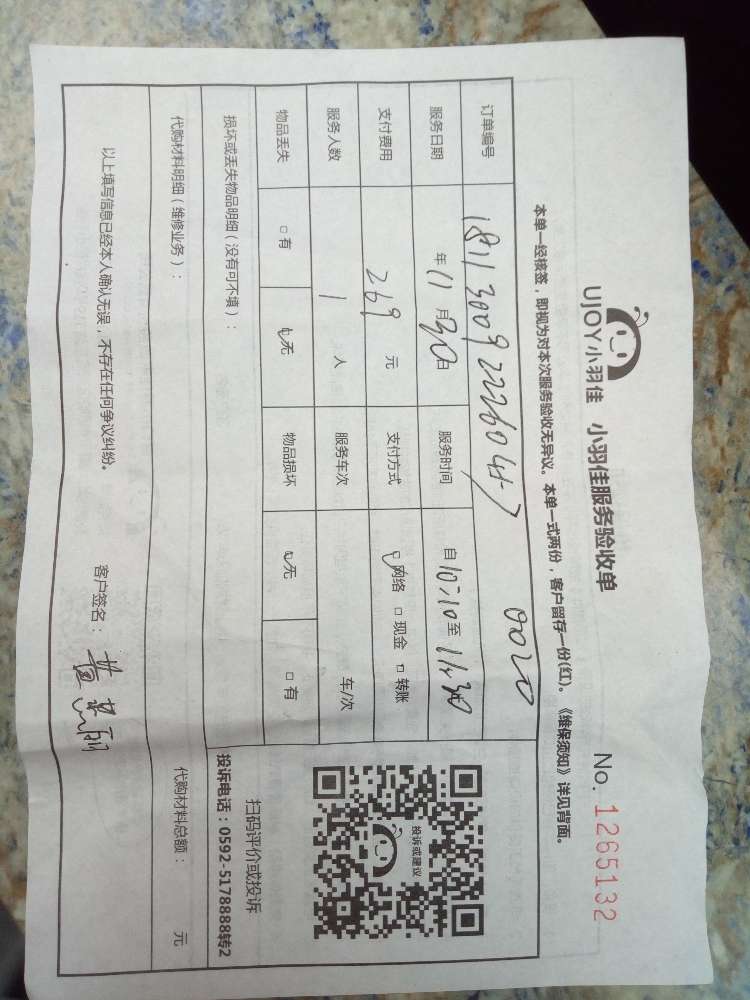 UJOY小羽佳 小羽佳服务验收单
No. 1265132
本单一经核签，即视为对本次服务验收无异议。本单一式两份，客户留存一份(红)。《维保须知》详见背面。
订单编号
服务日期 年 11 月 30 日 服务时间 自 10:10 至 11:30
支付费用 269 元 支付方式 网络 □ 现金 □ 转账
服务人数 1 人 服务车次 车/次
物品丢失 □ 有 ☑ 无 物品损坏 ☑ 无 □ 有
投诉或建议
扫码评价或投诉
投诉电话：0592-5178888转2
损坏或丢失物品明细（没有可不填）：
代购材料明细（维修业务）： 代购材料总额： 元
以上填写信息已经本人确认无误，不存在任何争议纠纷。
客户签名：